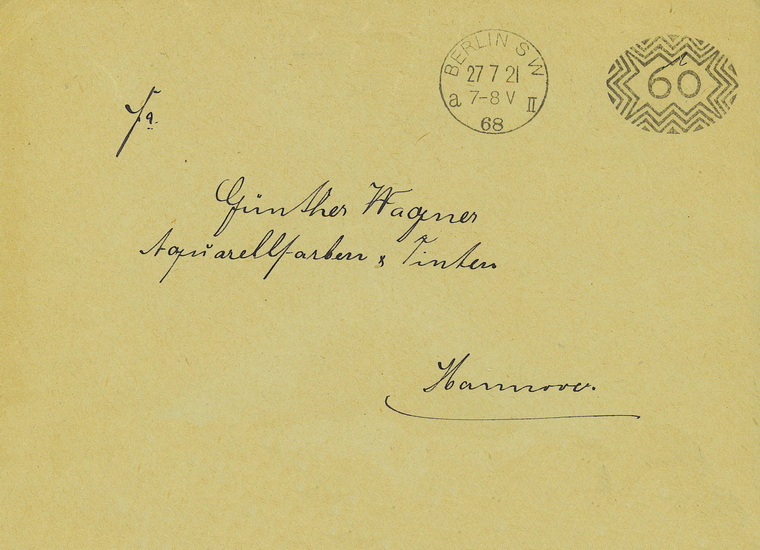 BERLIN SW
27 7 21
a 7-8 V II
68
60
Fa.
Günther Wagner
Aquarellfarben & Tinten
Hannover.